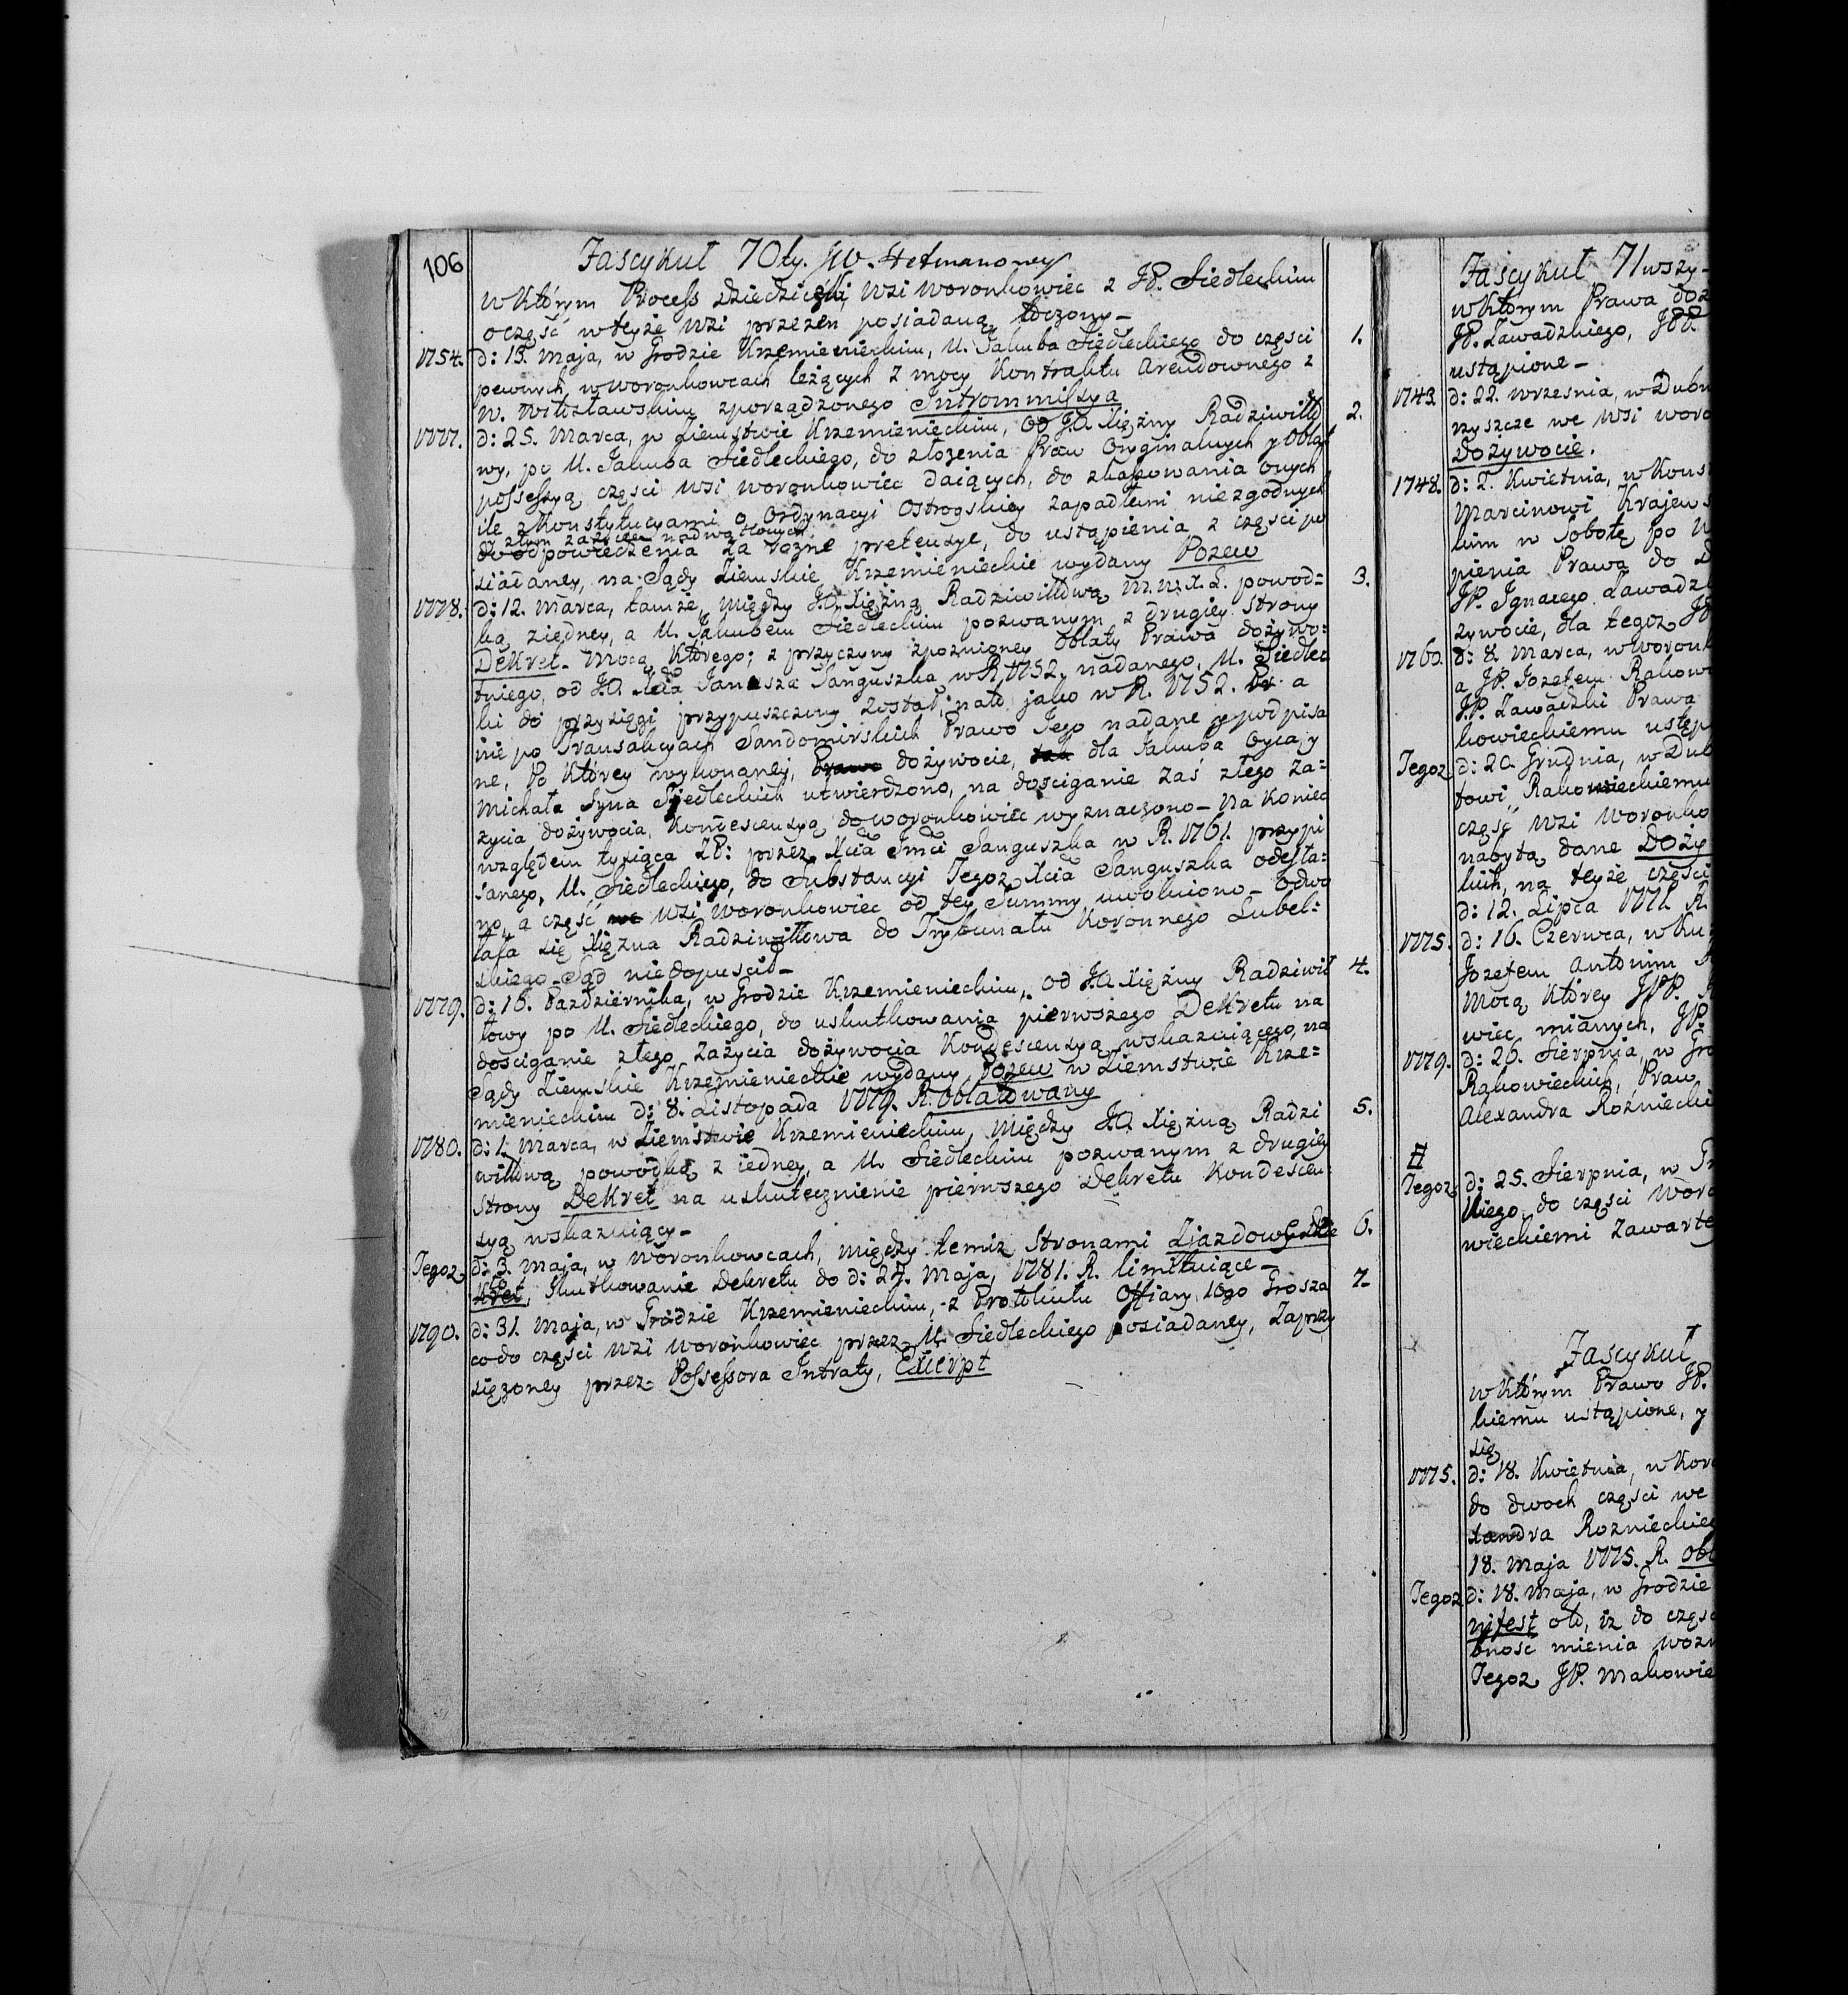 106
Fascykuł 70ty. JW. Hetmanowey
w Którym Process Dziedziczki wsi Woronkowiec z JP. Siedleckim
o część w teyże wsi przezeń posiadaną toczony –
1754. d: 13. Maja, w Grodzie Krzemienieckim, U. Jakuba Siedleckiego do części 1.
pewnych w Woronkowcach leżących z mocy Kontraktu Arendownego z
W. Witosławskim zporządzonego Intrommissya
1777. d: 25. Marca, w Ziemstwie Krzemienieckim, od J.O. Xiężny Radziwiłło 2.
wy, po U. Jakuba Siedleckiego, do złożenia Praw Oryginalnych y Oblat
possessyą części wsi Woronkowiec daiących, do skassowania onych
ile z Konstytucyami o Ordynacyi Ostrogskiey zapadłemi niezgodnych
y złym zażyciem nadwątlonych
do odpowiedzenia za rożne pretensye, do ustąpienia z części po
siadaney, na Sądy Ziemskie Krzemienieckie wydany Pozew
1778. d: 12. Marca, tamże, między J.O. Xiężną Radziwiłłową M.W.X.L. powod= 3.
ką z iedney, a U. Jakubem Siedleckim pozwanym z drugiey strony
Dekret. Mocą Którego; z przyczyny zpoznioney Oblaty Prawa dożywo:
tniego, od J.O. Xcia Janusza Sanguszka w R. 1752. nadanego, U. Siedlec
ki do przysięgi przypuszczony został, na to jako w R. 1752. a
nie po Transakcyach Sandomirskich Prawo Jego nadane y podpisa
ne, Po Którey wykonaney, Prawo dożywocie, dla Jakuba Oyca, y
Michała Syna Siedleckich utwierdzono, na dościganie zaś złego za=
życia dożywocia, Kondescensyą do Woronkowiec wyznaczono – na koniec
względem tysiąca zł: przez Xcia Jmci Sanguszka w R. 1761. przypi
sanego, U. Siedleckiego, do Substancyi Tegoż Xcia Sanguszka odesła=
no, a część wsi Woronkowiec od tey Summy uwolniono – Odwo
łała się Xiężna Radziwiłłowa do Trybunału Koronnego Lubel:
skiego Sąd niedopuścił –
1779. d: 16. Pazdziernika, w Grodzie Krzemienieckim, od J.O. Xiężny Radziwił 4.
łowy po U. Siedleckiego, do uskutkowania pierwszego Dekretu na
dościganie złego zażycia dożywocia Kondescensyą wskazuiącego, na
Sądy Ziemskie Krzemienieckie wydany Pozew w Ziemstwie Krze=
mienieckim d: 8. Listopada 1779. R. Oblatowany
1780. d: 1. Marca, w Ziemstwie Krzemienieckim, między J.O. Xiężną Radzi 5.
wiłłową powodką z iedney, a U. Siedleckim pozwanym z drugiey
Strony Dekret na uskutecznienie pierwszego Dekretu Kondescen:
syą wskazuiący –
Tegoż d: 3. Maja, w Woronkowcach, między temiż Stronami Zjazdowy De 6.
kret, Skutkowanie Dekretu do d: 27. Maja, 1781. R. limituiące –
1790. d: 31. Maja, w Grodzie Krzemienieckim, z Protokułu Offiary 10go Grosza 7.
co do części wsi Woronkowiec przez U. Siedleckiego posiadaney, Zaprzy
siężoney przez Possessora Intraty, Exierpt
Fascykuł 71wszy –
w Którym Prawa doż
JP. Zawadzkiego, JPP.
ustąpione –
1743. d: 22. Wrzesnia, w Dubn
rzyszcze we wsi Woro
Dożywocie.
1748. d: 2. Kwietnia, w Kons
Marcinowi Krajews
kim w Sobotę po
pienia Prawa do D
JP. Ignacego Zawadz
żywocie, dla tegoż JP
1760. d: 8. Marca, w Woronk
a JP. Jozefem Rakow
JP. Zawadzki Prawa
kowieckiemu ustęp
Tegoż d: 20. Grudnia, w Dub
towi Rakowieckiemu
część wsi Woronko
nabytą dane Doży
kich, na teyże części
d: 12. Lipca 1771. R.
1775. d: 16. Czerwca, w Ku
Jozefem Antonim
Mocą Którey JPP.
wiec mianych, JP.
1779. d: 26. Sierpnia, w Gro
Rakowieckich, Praw
Alexandra Rożniecki
Tegoż d: 25. Sierpnia, w Gr
kiego, do części Woro
wieckiemi zawarte
Fascykuł
w Którym Prawo JP.
kiemu ustąpione, y
się
1775. d: 18. Kwietnia, w Kor
do dwoch części we
xandra Roznieckieg
18. Maja 1775. R. Obl
Tegoż d: 18. Maja, w Grodzie
nifest oto, iż do częśc
bność mienia wozn
Tegoż JP. Makowie